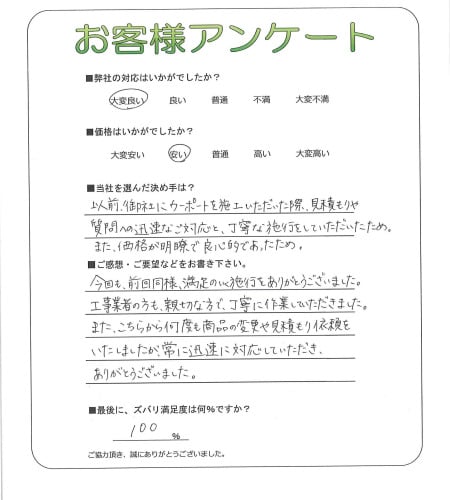 お客様アンケート
■弊社の対応はいかがでしたか？
大変良い 良い 普通 不満 大変不満
■価格はいかがでしたか？
大変安い 安い 普通 高い 大変高い
■当社を選んだ決め手は？
以前、御社にカーポートを施工いただいた際、見積もりや
質問への迅速なご対応と、丁寧な施行をしていただいたため。
また、価格が明瞭で良心的であったため。
■ご感想・ご要望などをお書き下さい。
今回も、前回同様、満足のいく施行をありがとうございました。
工事業者の方も、親切な方で、丁寧に作業していただきました。
また、こちらから何度も商品の変更や見積もり依頼を
いたしましたが、常に迅速に対応していただき、
ありがとうございました。
■最後に、ズバリ満足度は何％ですか？
100 %
ご協力頂き、誠にありがとうございました。